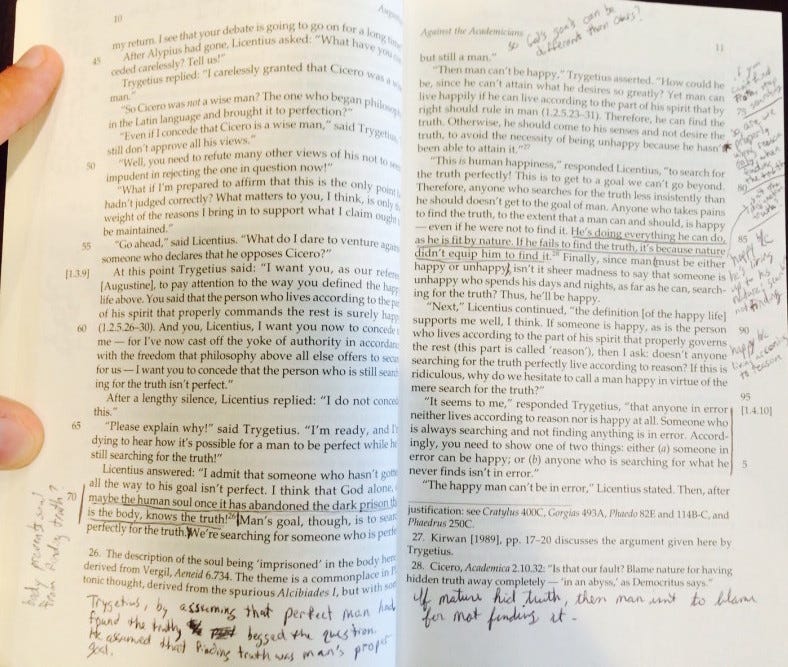 10
my return. I see that your debate is going to go on for a long time
45
After Alypius had gone, Licentius asked: "What have you
ceded carelessly? Tell us!"
Trygetius replied: "I carelessly granted that Cicero was a
man."
"So Cicero was not a wise man? The one who began philosoph
in the Latin language and brought it to perfection?"
"Even if I concede that Cicero is a wise man," said Trygetius,
still don't approve all his views."
50
"Well, you need to refute many other views of his not to
impudent in rejecting the one in question now!"
"What if I'm prepared to affirm that this is the only point
hadn't judged correctly? What matters to you, I think, is only
weight of the reasons I bring in to support what I claim ought
be maintained."
55
"Go ahead," said Licentius. "What do I dare to venture again
someone who declares that he opposes Cicero?"
[1.3.9]
At this point Trygetius said: "I want you, as our refere
[Augustine], to pay attention to the way you defined the hap
life above. You said that the person who lives according to the
of his spirit that properly commands the rest is surely hap
60
(1.2.5.26–30). And you, Licentius, I want you now to concede
me — for I've now cast off the yoke of authority in accordan
with the freedom that philosophy above all else offers to secu
for us — I want you to concede that the person who is still search
ing for the truth isn't perfect."
After a lengthy silence, Licentius replied: "I do not conce
this."
65
"Please explain why!" said Trygetius. "I'm ready, and I'
dying to hear how it's possible for a man to be perfect while he
still searching for the truth!"
Licentius answered: "I admit that someone who hasn't gotte
all the way to his goal isn't perfect. I think that God alone,
70
maybe the human soul once it has abandoned the dark prison th
is the body, knows the truth!26 Man's goal, though, is to sear
perfectly for the truth. We're searching for someone who is perfe
body prevents soul
from finding truth?
26. The description of the soul being 'imprisoned' in the body here
derived from Vergil, Aeneid 6.734. The theme is a commonplace in P
tonic thought, derived from the spurious Alcibiades I, but with so
Trygetius, by assuming that perfect man had
found the truth begged the question.
He assumed that finding truth was man's proper
goal.
Against the Academicians
11
so God's goals can be
different than ours?
but still a man."
"Then man can't be happy," Trygetius asserted. "How could he
be, since he can't attain what he desires so greatly? Yet man can
live happily if he can live according to the part of his spirit that by
right should rule in man (1.2.5.23–31). Therefore, he can find the
truth. Otherwise, he should come to his senses and not desire the
truth, to avoid the necessity of being unhappy because he hasn't
been able to attain it."27
"This is human happiness," responded Licentius, "to search for
80
the truth perfectly! This is to get to a goal we can't go beyond.
Therefore, anyone who searches for the truth less insistently than
he should doesn't get to the goal of man. Anyone who takes pains
to find the truth, to the extent that a man can and should, is happy
— even if he were not to find it. He's doing everything he can do,
85
as he is fit by nature. If he fails to find the truth, it's because nature
didn't equip him to find it.28 Finally, since man must be either
happy or unhappy, isn't it sheer madness to say that someone is
unhappy who spends his days and nights, as far as he can, search-
ing for the truth? Thus, he'll be happy.
90
"Next," Licentius continued, "the definition [of the happy life]
supports me well, I think. If someone is happy, as is the person
who lives according to the part of his spirit that properly governs
the rest (this part is called 'reason'), then I ask: doesn't anyone
searching for the truth perfectly live according to reason? If this is
ridiculous, why do we hesitate to call a man happy in virtue of the
mere search for the truth?"
95
"It seems to me," responded Trygetius, "that anyone in error
[1.4.10]
neither lives according to reason nor is happy at all. Someone who
is always searching and not finding anything is in error. Accord-
ingly, you need to show one of two things: either (a) someone in
error can be happy; or (b) anyone who is searching for what he
5
never finds isn't in error."
"The happy man can't be in error," Licentius stated. Then, after
if you
can't find
truth, stop
happy bc
he's living
up to his
not finding
happy bc
living according
to reason
justification: see Cratylus 400C, Gorgias 493A, Phaedo 82E and 114B-C, and
Phaedrus 250C.
27. Kirwan [1989], pp. 17–20 discusses the argument given here by
Trygetius.
28. Cicero, Academica 2.10.32: "Is that our fault? Blame nature for having
hidden truth away completely — 'in an abyss,' as Democritus says."
If nature hid truth, then man isn't to blame
for not finding it.